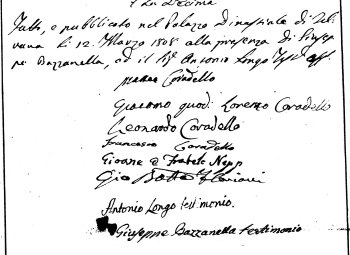 Decima
Fatto, e pubblicato nel Palazzo Dinastiale di Tel-
vana li 12. Marzo 1808 alla presenza di Giusep-
pe Bazzanella, ed il Antonio Longo
Coradello
Giacomo quod. Lorenzo Coradello
Leonardo Coradello
Francesco Coradello
Gioane e Fratele
Gio Batta
Antonio Longo testimonio.
Giuseppe Bazzanella testimonio